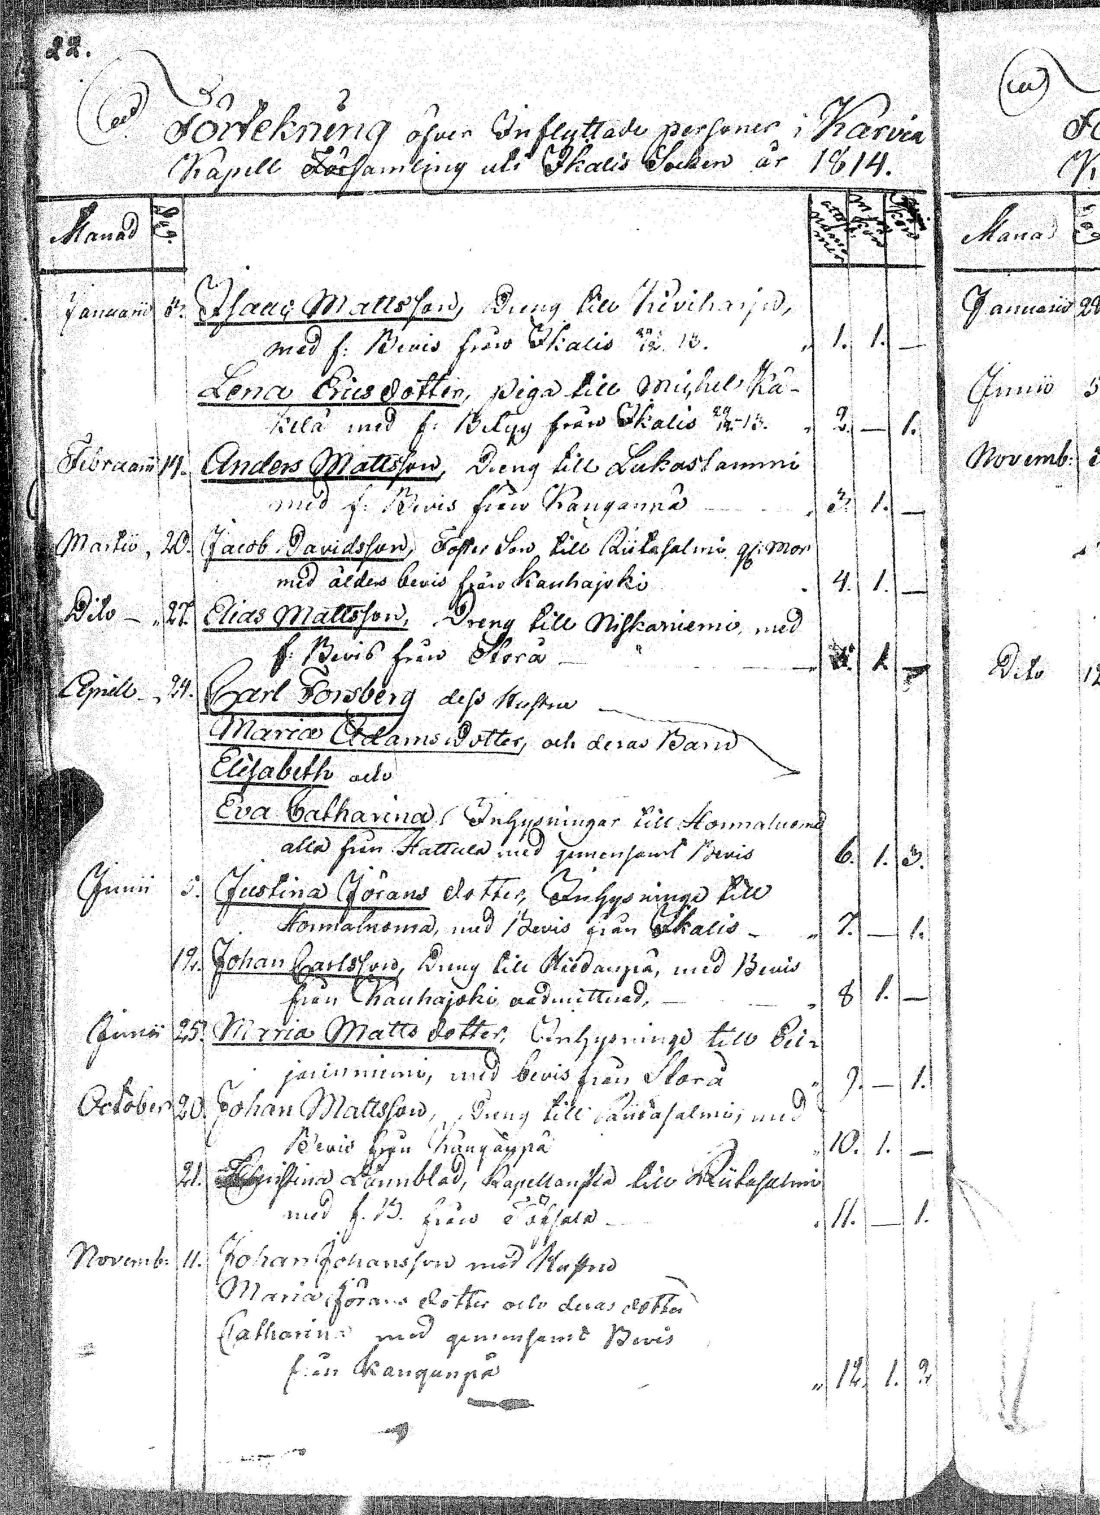 22.
Förtekning öfver Inflyttade personer i Karvia
Kapell Församling uti Ikalis Socken år 1814.
Manad Dag.
Januarii Isaac Mattsson, Dreng till Kiviharju,
med f: Bevis från Ikalis 12 13. 1. 1. —
Lena Ericsdotter, piga till Michels Kä-
kelä med f: Betyg från Ikalis 29/12 13. 2. — 1.
Februarii 14. Anders Mattsson, Dreng till Lukaslammi
med f. Bevis från Kanganpä 3. 1. —
Martii 20. Jacob Davidsson, Foster Son till Riitasalmi
med ålders bevis från Kauhajoki 4. 1. —
Dito — 27. Elias Mattsson, Dreng till Niskaniemi, med
f: Bevis från Storå — 1. —
Aprill 24. Carl Forsberg dess Hustru
Maria Adamsdotter, och deras Barn
Elisabeth och
Eva Catharina, Inhysningar till Honnaluoma
alla från Hattula med gemensamt Bevis 6. 1. 3.
Junii 5. Justina Jörans dotter, Inhysninge till
Honnaluoma, med Bevis från Ikalis — 7. — 1.
12. Johan Carlsson, Dreng till med Bevis
från Kauhajoki admitterad, — 8 1. —
Junii 25. Maria Matts dotter, Inhysninge till
med bevis från Storå 9. — 1.
October 20. Johan Mattsson, Dreng till Riitasalmi, med
Bevis från Kanganpä 10. 1. —
21. Christina Lännblad, till Riitasalmi
med f. B. från 11. — 1.
Novemb: 11. Johan Johansson med Hustru
Maria Jörans dotter och deras dotter
Catharina med gemensamt Bevis
från Kanganpä 12. 1. 2.
Manad
Januarii 28
Junii 5
Novemb:
Dito 12